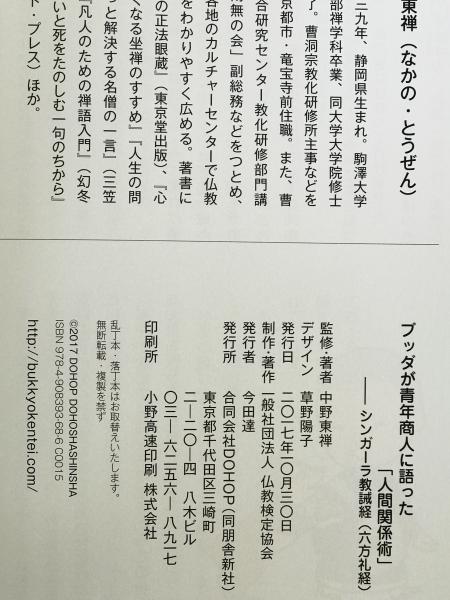 東禅（なかの・とうぜん）
三九年、静岡県生まれ。駒澤大学
部禅学科卒業、同大学大学院修士
了。曹洞宗教化研修所主事などを
京都市・竜宝寺前住職。また、曹
合研究センター教化研修部門講
無の会」副総務などをつとめ、
各地のカルチャーセンターで仏教
をわかりやすく広める。著書に
の正法眼蔵』（東京堂出版）、『心
くなる坐禅のすすめ』『人生の問
っと解決する名僧の一言』（三笠
『凡人のための禅語入門』（幻冬
いと死をたのしむ一句のちから』
ト・プレス）ほか。
ブッダが青年商人に語った
「人間関係術」
── シンガーラ教誡経（六方礼経）
監修・著者 中野東禅
デザイン 草野陽子
発行日 二〇一七年一〇月三〇日
制作・著作 一般社団法人 仏教検定協会
発行者 今田達
発行所 合同会社DOHOP（同朋舎新社）
東京都千代田区三崎町
二―二〇―四 八木ビル
〇三―六二五六―八九一七
印刷所 小野高速印刷 株式会社
乱丁本・落丁本はお取替えいたします。
無断転載・複製を禁ず
©2017 DOHOP DOHOSHASHINSHA
ISBN 978-4-908393-68-6 C0015
http://bukkyokentei.com/